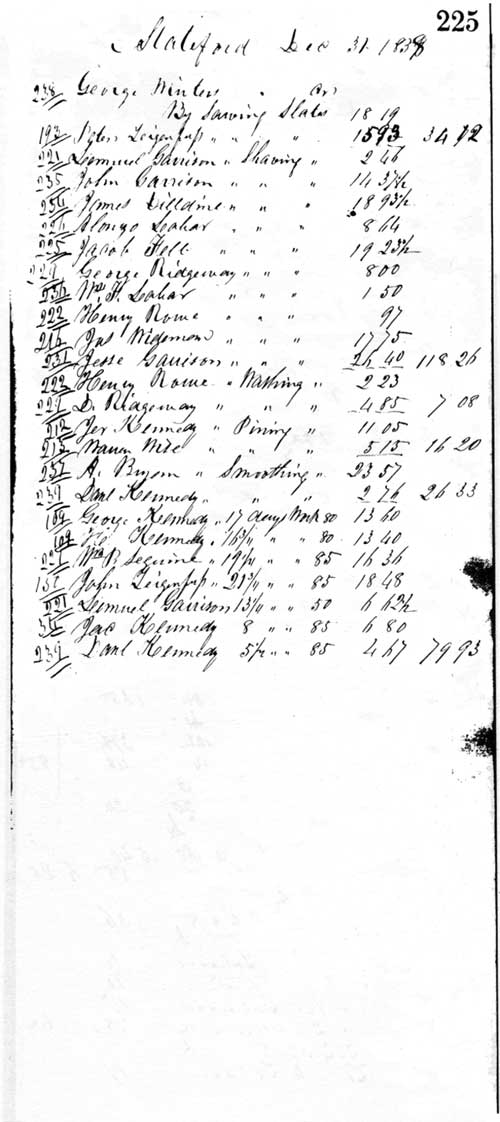 225
Slateford Dec 31 1838
238 George Winters " Cr
By Sawing Slates 18 19
193 Peter Zeigenfus " " " 15 93 34 12
221 Lemuel Garrison " Shaving " 2 46
235 John Garrison " " " 14 37½
234 James Dilldine " " " 18 93½
Alonzo Labar " " " 8 64
225 Jacob Felt " " " 19 23½
George Ridgeway " " " 8 00
236 Wm H. Labar " " " 1 50
222 Henry Rowe " " " 97
216 Jas Widemone " " " 17 75
231 Jesse Garrison " " " 26 40 118 26
222 Henry Rowe " Washing " 2 23
229 D. Ridgeway " " " 4 85 7 08
212 Jer Kennedy " Pining " 11 05
213 5 15 16 20
237 A. " Smoothing " 23 57
239 Danl Kennedy " " " 2 76 26 33
109 George Kennedy " 17 days Work 80 13 60
109 Kennedy " 16¾ " " 80 13 40
221 Wm R. Seguine " 19¼ " " 85 16 36
John Zeigenfus " 21¾ " " 85 18 48
221 Lemuel Garrison 13¼ " " 50 6 62½
Jac Kennedy 8 " " 85 6 80
239 Danl Kennedy 5½ " " 85 4 67 79 93